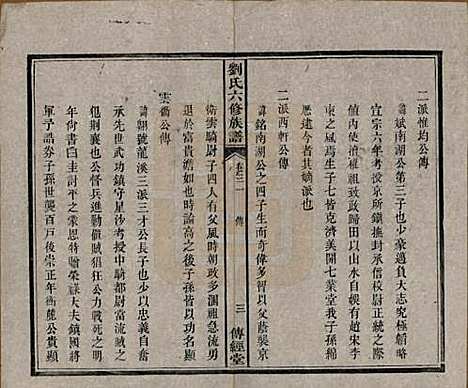 二派惟均公傳
諱斌南湖公第三子也少豪邁負大志究極韜畧
宣宗六年考授京所鎮撫封承信校尉正統二年
值內使瀆擾祖致鼓歸田以山水自娛有趙宋李
東之風焉生子七皆克濟美開七業堂我子孫綿
歷逮今者其嫡派也
二派西軒公傳
諱銘南湖公之四子生而奇偉多習以父蔭襲京
劉氏六修族譜
卷之二
傳
三
傳經堂
衛雲騎尉子四人有父風時朝政多濁祖急流勇
退於富貴澹如也時論高之後子孫皆以功名顯
雲衢公傳
諱翺號龍溪三派三才公長子也少以忠義自許
承先世武功鎮守星沙考授中騎都尉當流賊之
犯荊襄也公督兵進勦僞賊猖狂公力戰死之明
年尚書曰圭討平之蒙恩特贈榮祿大夫鎮國將
軍予誥劵子孫世襲百戶後崇正年衡麓公貴顯